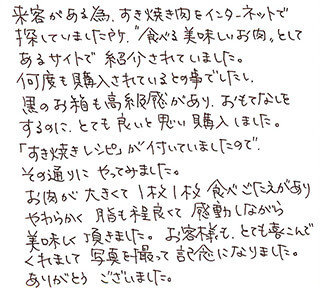 来客がある為、すき焼き肉をインターネットで
探していました所、"食べる美味しいお肉"として
あるサイトで紹介されていました。
何度も購入されているとの事でしたし、
黒のお箱も高級感があり、おもてなしを
するのに、とても良いと思い購入しました。
「すき焼きレシピ」が付いていましたので、
その通りにやってみました。
お肉が大きくて1枚1枚食べごたえがあり
やわらかく脂も程良くて感動しながら
美味しく頂きました。お客様も、とても喜こんで
くれまして写真を撮って記念になりました。
ありがとうございました。